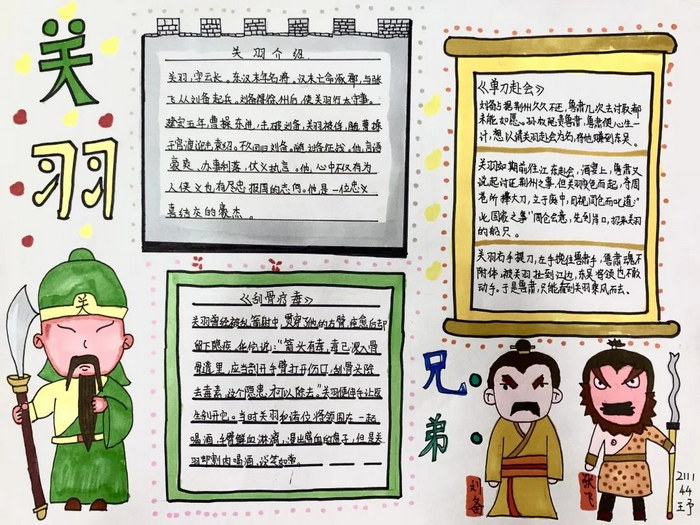 关
羽
关羽介绍
关羽，字云长。东汉末年名将。汉末亡命涿郡，与张
飞从刘备起兵。刘备得徐州后，使关羽行太守事。
建安五年，曹操东进，击破刘备，关羽被俘，随曹操
袁绍。不久回归刘备。随刘备征战。他，言语
豪爽、办事利落，仗义执言。他，心中不仅有为
人侠义也有尽忠报国的志向。他，是一位忠义
《刮骨疗毒》
关羽曾经被乱箭射中，贯穿了他的左臂，痊愈后却
留下隐疾，医师说：“箭头有毒，毒已深入骨
骨道里，应当剖开手臂打开伤口，刮骨头除
去毒素，这个隐患才可以除去。”关羽便伸手让医
生剖开它。当时关羽和诸位将领围在一起
喝酒，手臂鲜血淋漓，漫出盛血的盘子，但是关
羽却割肉喝酒，谈笑如常。
《单刀赴会》
刘备占据荆州久久不还，鲁肃几次去讨取都
未能如愿。孙权死责鲁肃，鲁肃便心生一
计，想以请关羽赴会为名，将他赚到东吴。
关羽如期前往江东赴会，酒宴上，鲁肃又
说起讨还荆州之事，但关羽脸色而起，夺周
仓所捧大刀，立于庭中，目视周仓而叱道：“
此国家之事”周仓会意，先到岸口，招来关羽
的船只。
关羽右手提刀，左手挽住鲁肃手，鲁肃魂不
附体，被关羽扯到江边，东吴将领也不敢
动手。于是鲁肃，只能看到关羽乘风而去。
兄
弟
关
刘备
张飞
2111
44